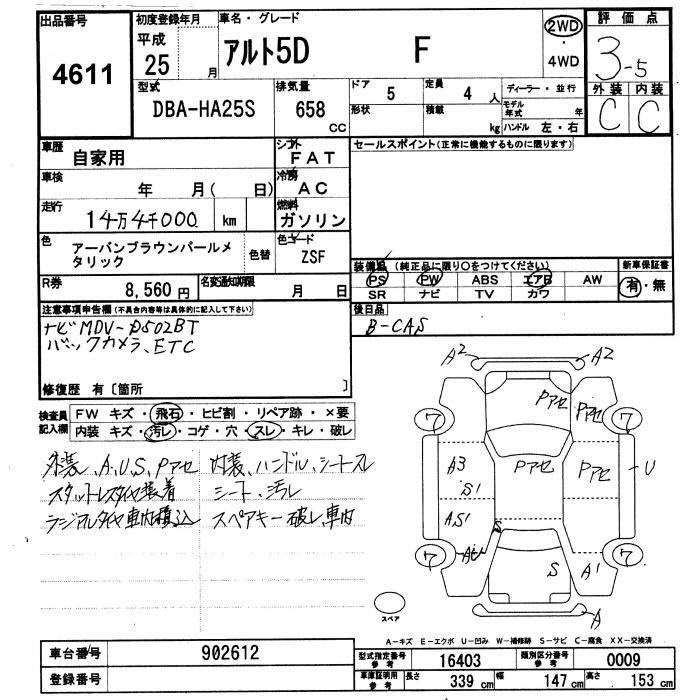 出品番号 4611
初度登録年月 平成 25 月
車名・グレード アルト5D F
2WD ・ 4WD
評価点 3-5
外装 内装
C C
型式 DBA-HA25S
排気量 658 CC
ドア 5 定員 4 人
形状 積載 kg
ディーラー・並行
モデル年式 年
ハンドル 左・右
車歴 自家用
シフト FAT
車検 年 月( 日)
冷房 AC
走行 14万4千000 km
燃料 ガソリン
色 アーバンブラウンパールメ
タリック
色替
色コード ZSF
R券 8,560 円
名変通知期限 月 日
セールスポイント(正常に機能するものに限ります)
装備品(純正品に限り○をつけてください)
PS PW ABS エアB AW
SR ナビ TV カワ
新車保証書
有・無
後日品
B-CAS
注意事項申告欄(不具合内容等は具体的に記入して下さい)
ナビMDV-D502BT
バックカメラ、ETC
修復歴 有〔箇所 〕
検査員記入欄
FW キズ・飛石・ヒビ割・リペア跡・×要
内装 キズ・汚レ・コゲ・穴・スレ・キレ・破レ
外装、A,U,S,Pアセ 内装、ハンドル、シートスレ
スタットレスタイヤ装着 シート、汚レ
ラジアルタイヤ車内積込 スペアキー破レ、車内
A2 A2
Pアセ Pアセ
ワ ワ
A3 Pアセ Pアセ U
S1
AS1 S
ワ AU ワ
S A1
A
スペア
A-キズ E-エクボ U-凹み W-補修跡 S-サビ C-腐食 XX-交換済
車台番号 902612
登録番号
型式指定番号 参考 16403
類別区分番号 参考 0009
車庫証明用 参考 長さ 339 cm 幅 147 cm 高さ 153 cm